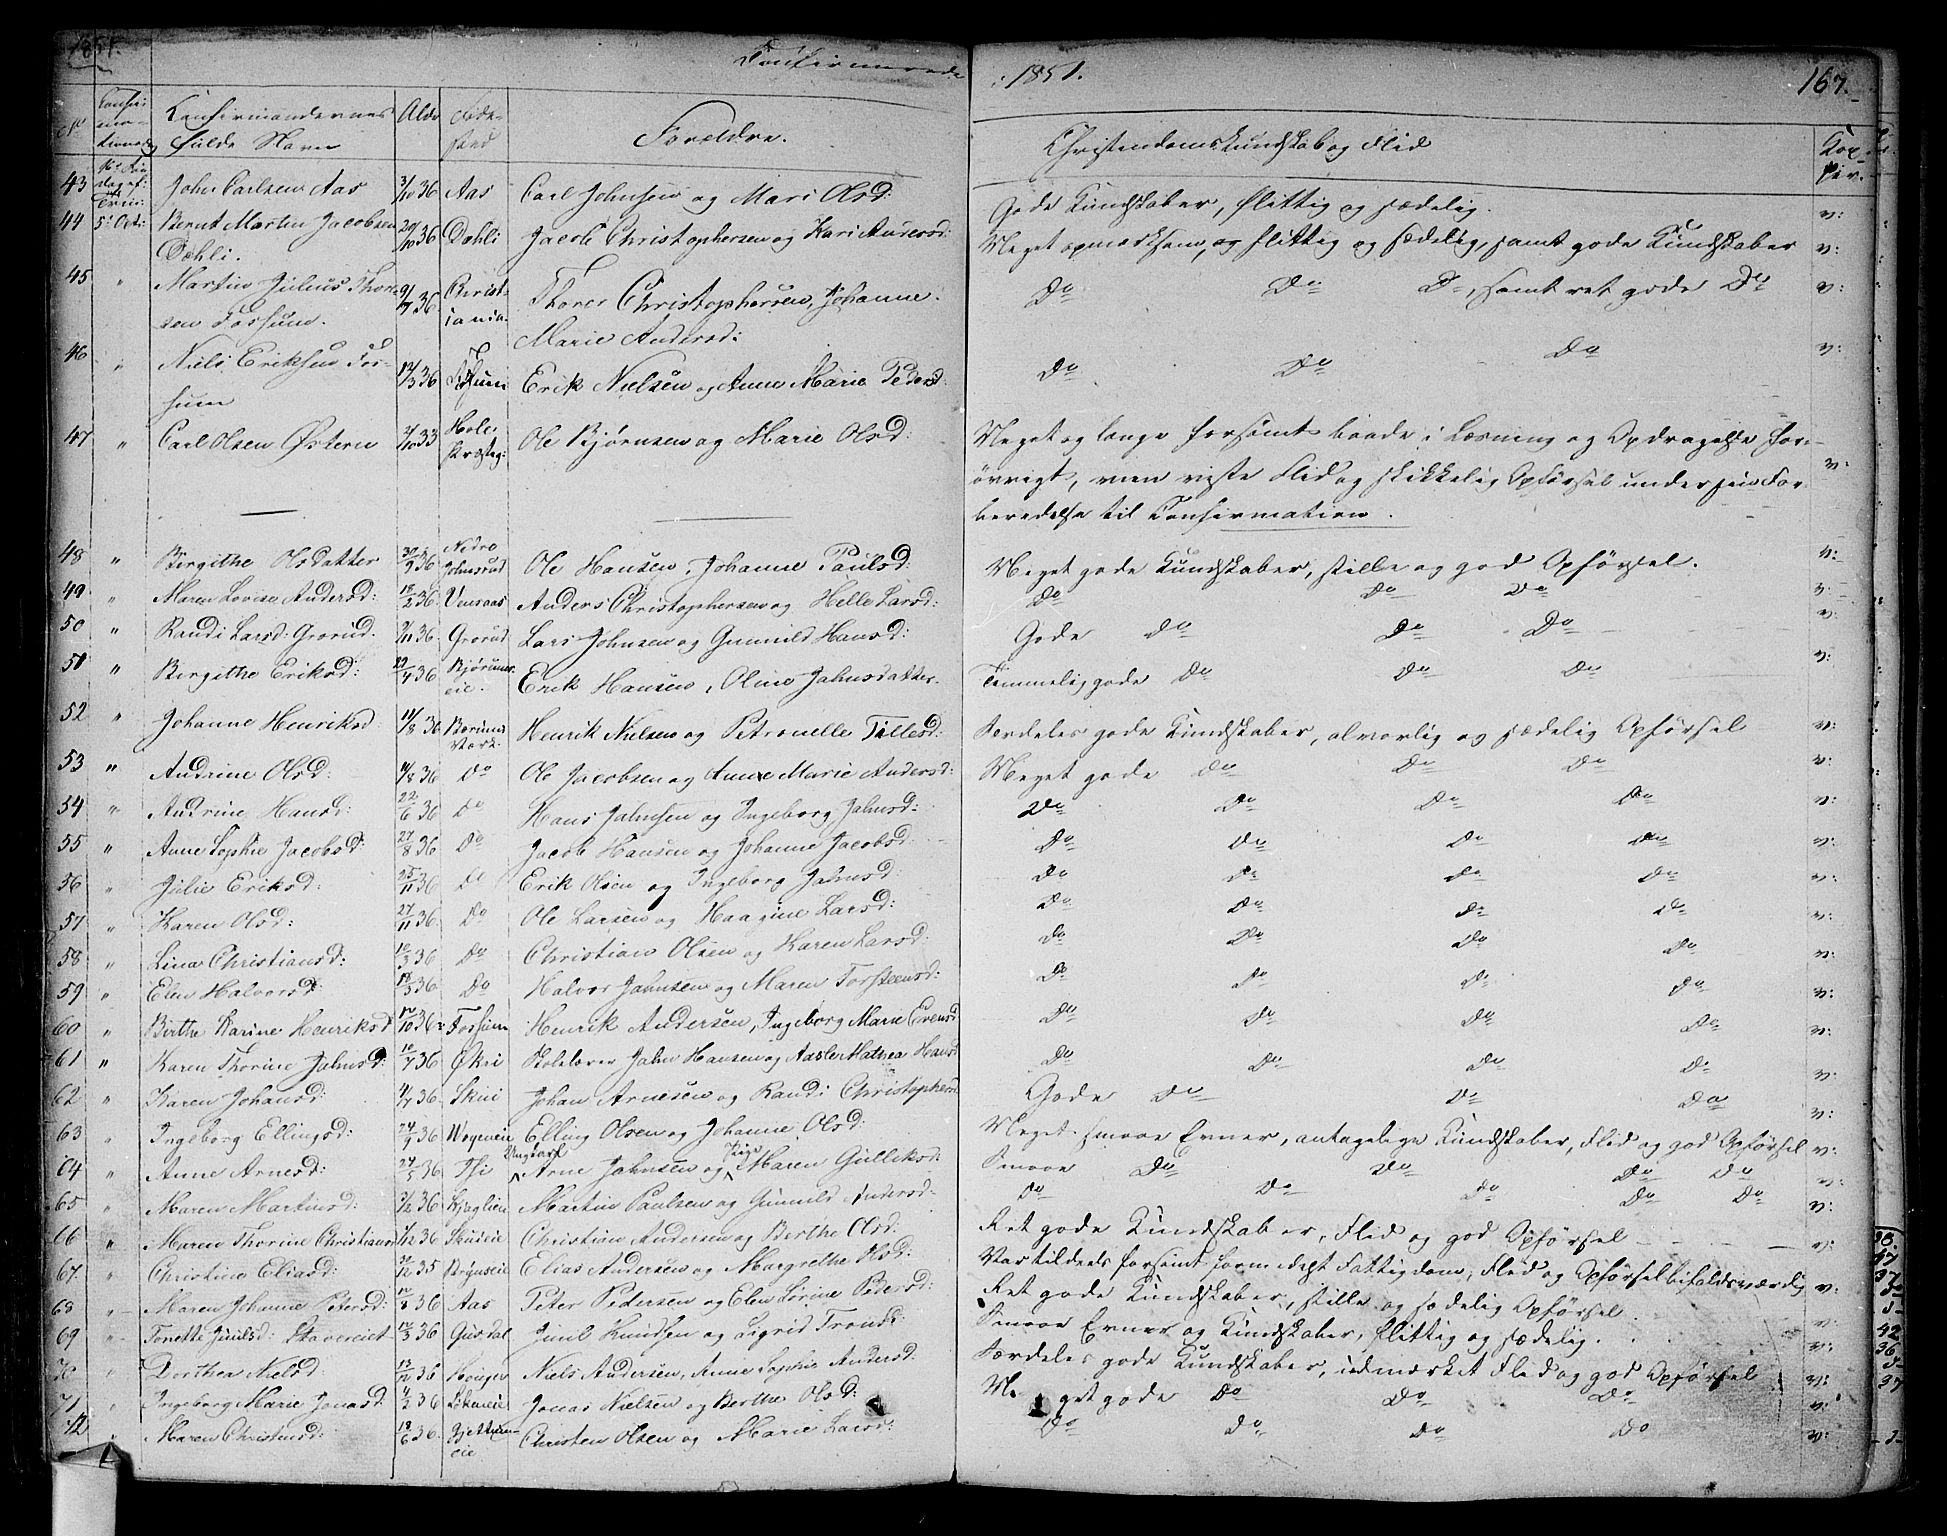 1851. Confirmerede 1851. 167.
No Confirmationsdag Confirmandernes fulde Navn Alder Fødested Forældre. Christendomskundskab og Flid Kop-piv.
43 John Carlsen Aas 3/10 36 Aas Carl Johnsen og Mari Olsd: Gode Kundskaber, flittig og sædelig. v:
44 5t Oct: Bernt Martin Jacobsen Dæhli. 20/10 36 Dæhli Jacob Christophersen og Kari Andersd: Meget opmærksom, og flittig og sædelig, samt gode Kundskaber v:
45 " Martin Julius Thoresen Fossum. 9/7 36 Christiania. Thorer Christophersen, Johanne Marie Andersd: Do Do Do, samt ret gode Do v:
46 " Niels Eriksen Fossum 14/3 36 Fossum Erik Nielsen og Anne Marie Pedersd: Do Do Do v:
47 " Carl Olsen Østern 2/10 33 Hole Præsteg: Ole Bjørnsen og Marie Olsd: Meget og længe forsømt baade i Læsning og Opdragelse for-
øvrigt, men viste Flid og skikkelig Opførsel under sin For- v:
beredelse til Confirmation.
48 " Birgithe Olsdatter 30/9 36 Nedre Johnsrud Ole Hansen, Johanne Paulsd: Meget gode Kundskaber, stille og god Opførsel. v:
49 " Maren Lovise Andersd: 18/2 36. Venraas Anders Christophersen og Helle Larsd: Do Do Do v:
50 " Randi Larsd: Grorud. 7/11 36 Grorud Lars Johnsen og Gunnild Hansd: Gode Do Do Do v:
51 " Birgithe Eriksd: 29/4 36 Bjørumseie. Erik Hansen, Oline Jahnsdatter. Temmelig gode Do Do Do v:
52 " Johanne Henriksd: 11/8 36 Bærums Værk. Henrik Nielsen og Petronelle Tillesd: Særdeles gode Kundskaber, alvorlig og sædelig Opførsel v:
53 " Andrine Olsd: 11/8 36 Do Ole Jacobsen og Anne Marie Andersd: Meget gode Do Do Do v:
54 " Andrine Hansd: 22/6 36 Do Hans Jahnsen og Ingeborg Jahnsd: Do Do Do Do v:
55 " Anne Sophie Jacobsd: 27/8 36 Do Jacob Hansen og Johanne Jacobsd: Do Do Do Do v:
56 " Julie Eriksd: 25/11 36 Do Erik Olsen og Ingeborg Jahnsd: Do Do Do Do v:
57 " Karen Olsd: 27/11 36. Do Ole Larsen og Haagine Larsd: Do Do Do Do v:
58 " Lina Christiansd: 10/3 36 Do Christian Olsen og Karen Larsd: Do Do Do Do v:
59 " Elen Halvorsd: 18/5 36 Do Halvor Jahnsen og Maren Torsteensd: Do Do Do Do v:
60 " Birthe Karine Henriksd 12/10 36 Fossum Henrik Andersen, Ingeborg Marie Evensd Do Do Do Do v:
61 " Karen Thorine Jahnsd: 10/7 36 Økri Skolelærer Jahn Hansen og Aasler Mathea Hansd Do Do Do Do v:
62 " Karen Johansd: 4/7 36. Skui Johan Arnesen og Randi Christophersd Gode Do Do Do v:
63 " Ingeborg Ellingsd: 24/7 36 Wøyeneie Elling Olsen og Johanne Olsd: Meget smaae Evner, antagelige Kundskaber, Flid og god Opførsel v:
64 " Anne Arnesd: 27/5 36 Tji Ungkarl Arne Jahnsen og Pige Maren Gulliksd: Smaae Do Do Do Do v:
65 " Maren Martinsd: 3/12 36 Kjaglien Martin Paulsen og Gunnild Andersd: Do Do Do Do Do v:
66 " Maren Thorine Christiansd 1/12 36 Skuieie Christian Andersen og Berthe Olsd: Ret gode Kundskaber, Flid og god Opførsel v:
67. " Christine Eliasd: 31/12 35 Bryneseie Elias Andersen og Margrethe Olsd: Var tildeels forsømt formedelst Fattigdom, Flid og Opførsel bifaldsværdig v:
68 " Maren Johanne Petersd: 12/8 36 Aas Peter Pedersen og Elen Lovine Pedersd: Ret gode Kundskaber, stille og sædelig Opførsel v:
69 " Tonette Juulsd: Stavereiet 12/3 36 Gusdal Juul Knudsen og Sigrid Trondsd: Smaae Evner og Kundskaber, flittig og sædelig. v:
70 " Dorthea Nielsd: 13/12 36 Haugen Niels Andersen, Anne Sophie Andersd: Særdeles gode Kundskaber, udmærket Flid og god Opførsel v:
71 " Ingeborg Marie Jonasd: 4/2 36 Løkeneie Jonas Nielsen og Berthe Olsd: Meget gode Do Do Do v:
72 " Maren Christensd: 18/6 36. Gjettumeie Christen Olsen og Marie Larsd: Do Do Do Do v: